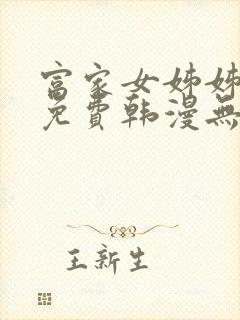 富家女姊姊
免費韩漫無
王新生